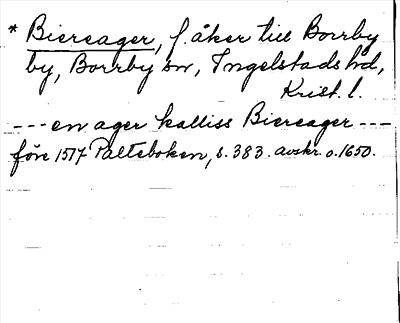 * Biereager, f. åker till Borrby
by, Borrby sn, Ingelstads hd,
Krist. l.
--- en ager kalliss Biereager ---
före 1517 Palteboken, s. 383. avskr. o. 1650.